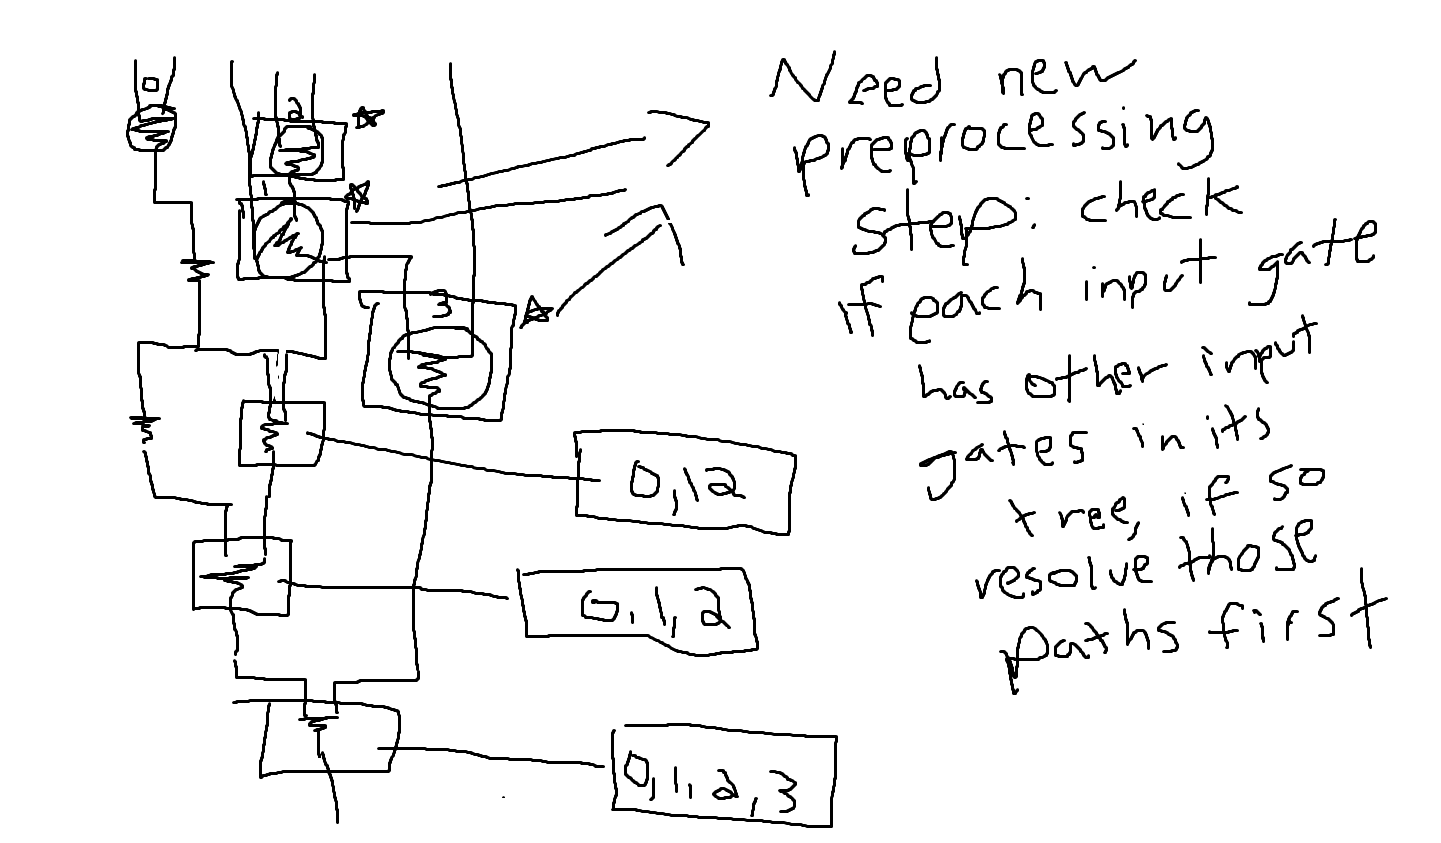 0
2
1
3
Need new
preprocessing
step: check
if each input gate
has other input
gates in its
tree, if so
resolve those
paths first
0,12
0,1,2
0,1,2,3